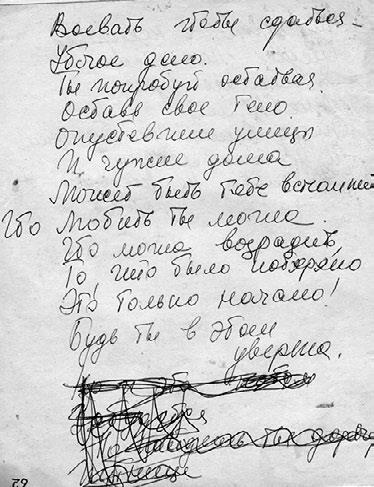 Воевать чтобы сдаться –
Убогое дело.
Ты попробуй остаться
Оставь свое тело.
Опустевшие улицы
И чужие дома
Может быть тебе вспомни
Что Любить ты могла.
Что могла возродить
То, что было потеряно
Это только начало!
Будь ты в этом
уверена.
62